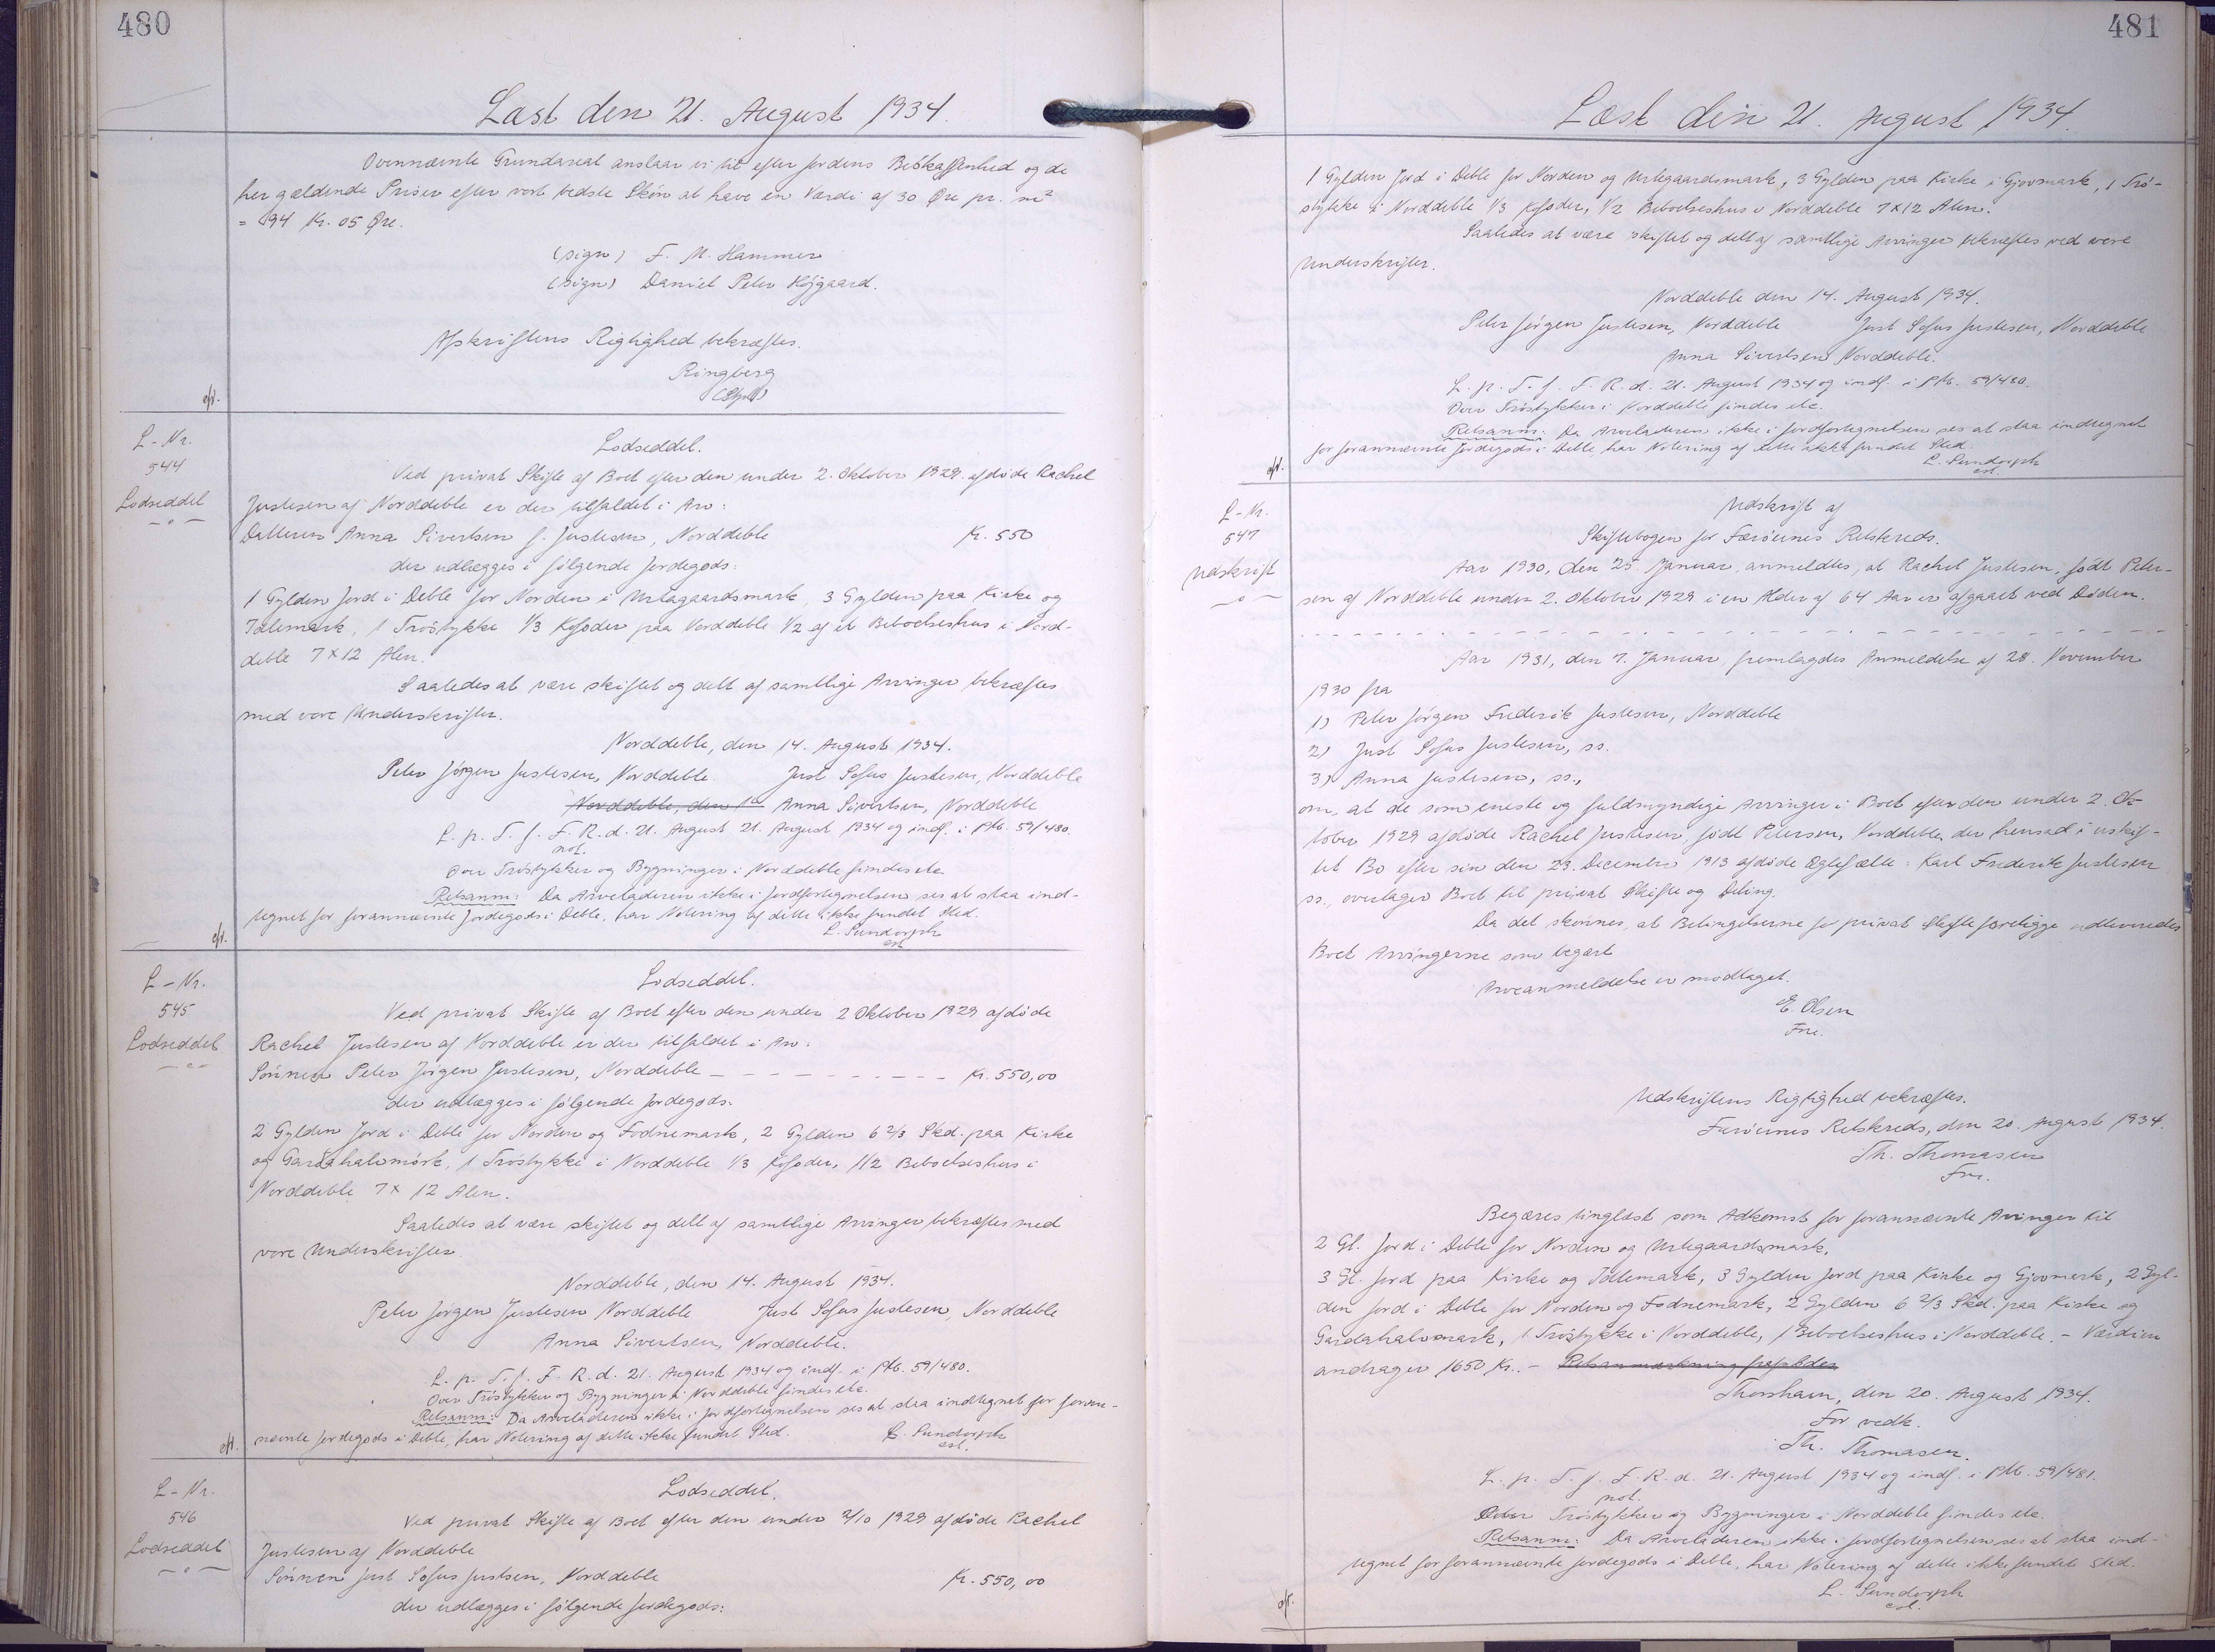 480
Læst den 21. August 1934.
Ovennævnte Grundareal anslaar vi til efter Jordens Beskaffenhed og de
her gældende Priser efter vort bedste Skön at have en Værdi af 30 Øre pr. m²
= 94 Kr. 05 Øre.
(sign) F. M. Hammer
(sign) Daniel Peter Højgaard.
Afskriftens Rigtighed bekræftes.
Ringberg
L-Nr.
544
Lodseddel
Lodseddel.
Ved privat Skifte af Boet efter den under 2. Oktober 1929 afdöde Rachel
Justesen af Norddeble er der tilfaldet i Arv:
Datteren Anna Sivertsen f. Justesen, Norddeble Kr. 550
der udlægges i fölgende Jordegods:
1 Gylden Jord i Deble for Norden i Urtagaardsmark, 3 Gylden paa Kirke og
Tølemark, 1 Tröstykke 1/3 Kofoder paa Norddeble 1/2 af et Beboelseshus i Nord-
deble 7 x 12 Alen.
Saaledes at være skiftet og delt af samtlige Arvinger bekræftes
med vore Underskrifter.
Norddeble, den 14. August 1934.
Peter Jörgen Justesen, Norddeble Just Sofus Justesen, Norddeble
Norddeble, den 1 Anna Sivertsen, Norddeble
L. p. T. f. F. R. d. 21. August 21. August 1934 og indf. i Ptb. 59/480.
not.
Over Tröstykker og Bygninger i Norddeble findes etc.
Retsanm: Da Arveladeren ikke i Jordfortegnelsen ses at staa ind-
tegnet for forannævnte Jordegods i Deble, har Notering af dette ikke fundet Sted.
L. Sundorph
L-Nr.
545
Lodseddel
Lodseddel.
Ved privat Skifte af Boet efter den under 2 Oktober 1929 afdöde
Rachel Justesen af Norddeble er der tilfaldet i Arv:
Sönnen Peter Jörgen Justesen, Norddeble - - - - - - - - - Kr. 550,00
der udlægges i fölgende Jordegods:
2 Gylden Jord i Deble for Norden og Fodnemark, 2 Gylden 6 2/3 Skd. paa Kirke
og Gardahalsmörk, 1 Tröstykke i Norddeble 1/3 Kofoder, 1/2 Beboelseshus i
Norddeble 7 x 12 Alen.
Saaledes at være skiftet og delt af samtlige Arvinger bekræftes med
vore Underskrifter.
Norddeble, den 14. August 1934.
Peter Jörgen Justesen Norddeble Just Sofus Justesen, Norddeble
Anna Sivertsen, Norddeble.
L. p. T. f. F. R. d. 21. August 1934 og indf. i Ptb. 59/480.
Over Tröstykker og Bygninger i Norddeble findes etc.
Retsanm: Da Arveladeren ikke i Jordfortegnelsen ses at staa indtegnet for foran-
nævnte Jordegods i Deble, har Notering af dette ikke fundet Sted. L. Sundorph
L-Nr.
546
Lodseddel
Lodseddel.
Ved privat Skifte af Boet efter den under 2/10 1929 afdöde Rachel
Justesen af Norddeble
Sönnen Just Sofus Justsen, Norddeble Kr. 550,00
der udlægges i fölgende Jordegods:
481
Læst den 21. August 1934.
1 Gylden Jord i Deble for Norden og Urtegaardsmark, 3 Gylden paa Kirke i Gjovmark, 1 Trö-
stykke i Norddeble 1/3 Kofoder, 1/2 Beboelseshus i Norddeble 7 x 12 Alen.
Saaledes at være skiftet og delt af samtlige Arvinger bekræftes ved vore
Underskrifter.
Norddeble den 14. August 1934.
Peter Jörgen Justesen, Norddeble Just Sofus Justesen, Norddeble
Anna Sivertsen Norddeble.
L. p. T. f. F. R. d. 21. August 1934 og indf. i Ptb. 59/480.
Over Tröstykker i Norddeble findes etc.
Retsanm: Da Arveladeren ikke i Jordfortegnelsen ses at staa indtegnet
for forannævnte Jordegods i Deble har Notering af dette ikke fundet Sted.
L. Sundorph
L-Nr.
547
Udskrift
Udskrift af
Skiftebogen for Færöernes Retskreds.
Aar 1930, den 25. Januar, anmeldtes, at Rachel Justesen, födt Peter-
sen af Norddeble under 2. Oktober 1929 i en Alder af 64 Aar er afgaaet ved Döden.
Aar 1931, den 7. Januar, fremlagdes Anmeldelse af 28. November
1930 fra
1) Peter Jörgen Frederik Justesen, Norddeble
2) Just Sofus Justesen, ss.
3) Anna Justesen, ss.,
om, at de som eneste og fuldmyndige Arvinger i Boet efter den under 2. Ok-
tober 1929 afdöde Rachel Justesen, födt Petersen, Norddeble, der hensad i uskif-
tet Bo efter sin den 23. December 1913 afdöde Ægtefælle: Karl Frederik Justesen
ss., overtager Boet til privat Skifte og Deling.
Da det skönnes, at Betingelserne for privat Skifte foreligge udleveredes
Boet Arvingerne som begært
Arveanmeldelse er modtaget.
E. Olsen
Fm.
Udskriftens Rigtighed bekræftes.
Færöernes Retskreds, den 20. August 1934.
Th. Thomasen
Fm.
Begæres tinglæst som Adkomst for forannævnte Arvinger til
2 Gl. Jord i Deble for Norden og Urtegaardsmark,
3 Gl. Jord paa Kirke og Tøllemark, 3 Gylden Jord paa Kirke og Gjovmark, 2 Gyl-
den Jord i Deble for Norden og Fodnemark, 2 Gylden 6 2/3 Skd. paa Kirke og
Gardahalsmark, 1 Tröstykke i Norddeble, 1 Beboelseshus i Norddeble. - Værdien
andrager 1650 Kr. -
Thorshavn, den 20. August 1934.
For vedk.
Th. Thomasen.
L. p. T. f. F. R. d. 21. August 1934 og indf. i Ptb. 59/481.
not.
Over Tröstykker og Bygninger i Norddeble findes etc.
Retsanm: Da Arveladeren ikke i Jordfortegnelsen ses at staa ind-
tegnet for forannævnte Jordegods i Deble, har Notering af dette ikke fundet Sted.
L. Sundorph